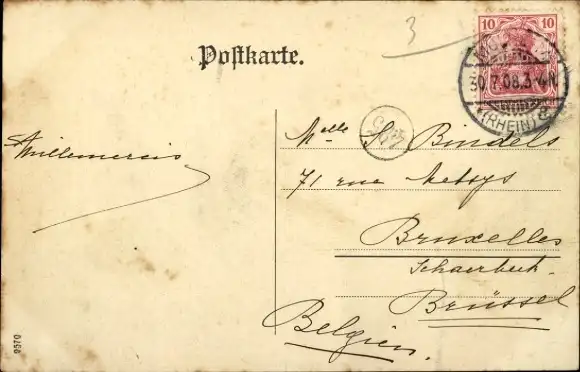 Postkarte.
3
10 10
30.7.08.3-4N
(RHEIN)
Millemercis
Melle S. Bindels
71 rue Metsys
Bruxelles
Schaerbeek
Brüssel
Belgien.
9570